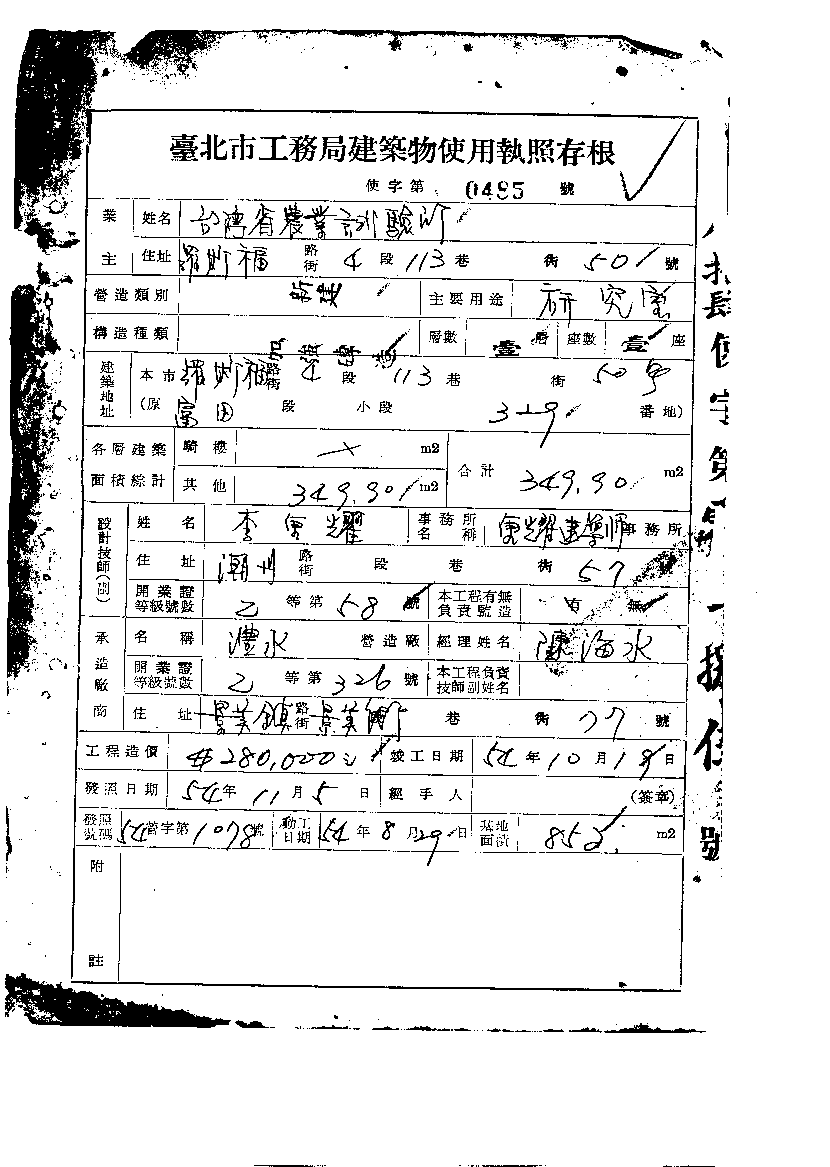 臺北市工務局建築物使用執照存根
使字第 0485 號
業主 姓名 台灣省農業試驗所
住址 羅斯福路街 4 段 113 巷 街 50 號
營造類別 新建 主要用途 研究室
構造種類 加強磚造 層數 壹層 座數 壹座
建築地址 本市 羅斯福路街 4 段 113 巷 街 50號
(原 富田 段 小段 329 番地)
各層建築面積綜計 騎樓 × m2 合計 349.90 m2
其他 349.90 m2
設計技師(副) 姓名 李重耀 事務所名稱 重耀建築師事務所
住址 潮州路街 段 巷 街 57 號
開業證等級號數 乙 等第 58 號 本工程有無負責監造 有 無
承造廠商 名稱 灃水 營造廠 經理姓名 陳海水
開業證等級號數 乙 等第 326 號 本工程負責技師副姓名
住址 景美鎮路街 景美街 巷 街 77 號
工程造價 #280,000 竣工日期 54 年 10 月 18 日
發照日期 54 年 11 月 5 日 經手人 (簽章)
發照號碼 54營字第 1078 號 動工日期 54 年 8 月 29 日 基地面積 852 m2
附註